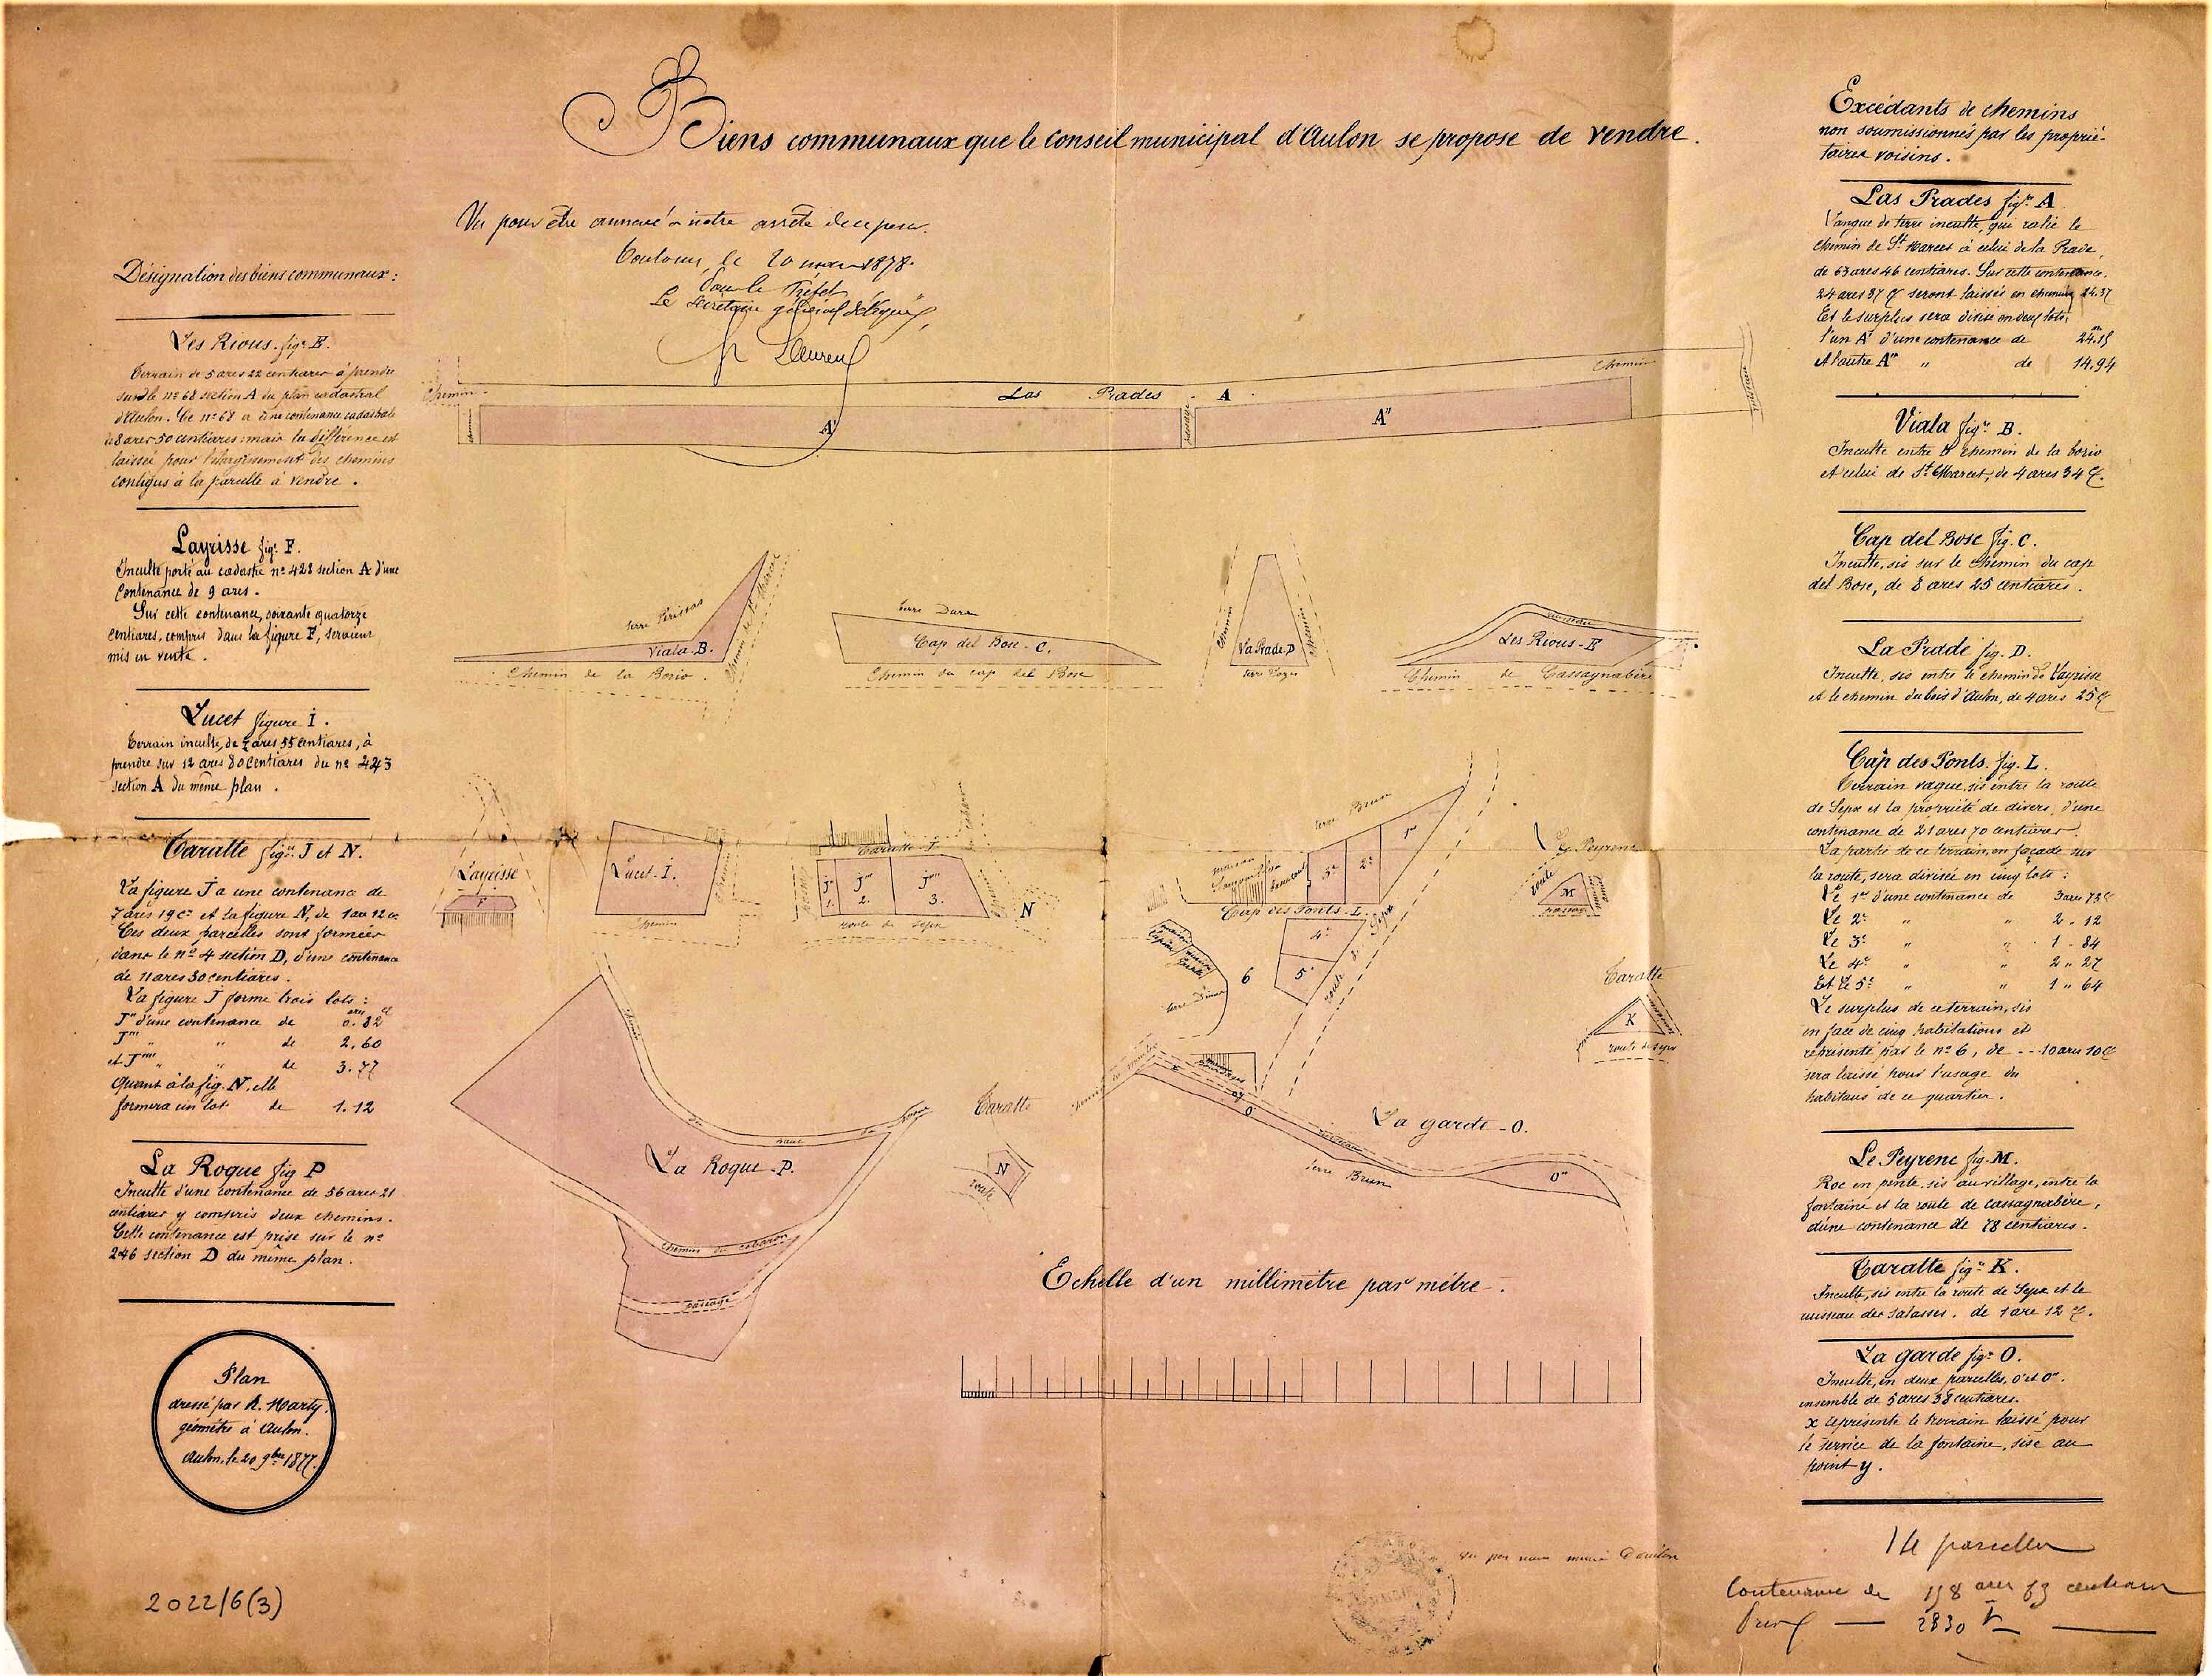 Biens communaux que le Conseil municipal d'Aulon se propose de vendre.
Vu pour être annexé à notre arrêté de ce jour.
Toulouse, le 20 mars 1878.
Pour le Préfet
Le Secrétaire général délégué,
Désignation des biens communaux :
Les Rious fig.re E.
Terrain de 5 ares 22 centiares à prendre
sur le n.º 68 section A du plan cadastral
d'Aulon. Ce n.º 68 a une contenance cadastrale
de 8 ares 50 centiares : mais la différence est
laissée pour l'élargissement des chemins
contigus à la parcelle à vendre.
Layrisse fig.e F.
Inculte porté au cadastre n.º 428 section A d'une
Contenance de 9 ares.
Sur cette contenance, soixante quatorze
centiares, compris dans la figure F, seraient
mis en vente.
Lucet figure I.
Terrain inculte, de 7 ares 55 centiares, à
prendre sur 12 ares 80 centiares du n.º 443
section A du même plan.
Taratte fig.res J et N.
La figure J a une contenance de
7 ares 19 c.es et la figure N, de 1 are 12 c.
Ces deux parcelles sont formées
dans le n.º 4 section D, d'une contenance
de 11 ares 30 centiares.
La figure J forme trois lots :
J" d'une contenance de 0.82
J''' " de 2.60
et J'''' " de 3.77
Quant à la fig. N, elle
formera un lot de 1.12
La Roque fig P
Inculte d'une contenance de 56 ares 21
centiares y compris deux chemins.
Cette contenance est prise sur le n.º
246 section D du même plan.
Plan
dressé par R. Marty.
géomètre à Aulon.
Aulon, le 20 9bre 1877.
2022/6(3)
Chemin
Las Prades - A.
Chemin
chemin
A'
passage
A"
terre Périssas
Viala-B.
Chemin de St Marcet
Chemin de la Borio.
terre Dare
Cap del Bosc-C.
Chemin du cap del Bosc
chemin
La Prade-D
chemin
Les Rious-E
Chemin de Cassagnabère
Layrisse
F
Lucet-I.
chemin
Chemin
Taratte-J
J" 1.
J''' 2.
J'''' 3.
route de Sepx
N
terre Brun
1er
2e
3e
Cap des Ponts-L.
4e
5e
6
route de Sepx
maison
G. Peyrenc
route
M
passage
Taratte
K
route de Sepx
La Roque-P.
chemin du cabaron
passage
Taratte
N
route
x
y
O'
La garde-O.
ruisseau
terre Brun
O"
Echelle d'un millimètre par mètre.
vu par nous maire d'aulon
Excédants de chemins
non soumissionnés par les proprié-
taires voisins.
Las Prades fig.re A
Langue de terre inculte, qui relie le
chemin de St Marcet à celui de la Prade,
de 63 ares 46 centiares. Sur cette contenance.
24 ares 37 c. seront laissés en chemins 24.37
Et le surplus sera divisé en deux lots,
l'un A' d'une contenance de 24.15
et l'autre A" " de 14.94
Viala fig.re B.
Inculte entre le chemin de la borio
et celui de St Marcet, de 4 ares 34 c.
Cap del Bosc fig. C.
Inculte, sis sur le chemin du cap
del Bosc, de 8 ares 25 centiares.
La Prade fig. D.
Inculte, sis entre le chemin de Layrisse
et le chemin du bois d'Aulon, de 4 ares 25 c.
Cap des Ponts. fig. L.
Terrain vague, sis entre la route
de Sepx et la propriété de divers, d'une
contenance de 21 ares 70 centiares.
La partie de ce terrain, en façade sur
la route, sera divisée en cinq lots :
Le 1er d'une contenance de 3 ares 73 c
Le 2e " " 2 - 12
Le 3e " " 1 - 84
Le 4e " " 2 " 27
Et le 5e " " 1 " 64
Le surplus de ce terrain, sis
en face de cinq habitations et
représenté par le n.º 6, de -- 10 ares 10 c
sera laissé pour l'usage des
habitans de ce quartier.
Le Peyrenc fig. M.
Roc en pente, sis au village, entre la
fontaine et la route de Cassagnabère,
d'une contenance de 78 centiares.
Taratte fig.re K.
Inculte, sis entre la route de Sepx et le
ruisseau des Salasses, de 1 are 12 c.
La garde fig.e O.
Inculte, en deux parcelles, O' et O".
ensemble de 5 ares 38 centiares.
x représente le terrain laissé pour
le service de la fontaine, sise au
point y.
14 parcelles
Contenance de 158 ares 63 centiares
Prix — 2830 f